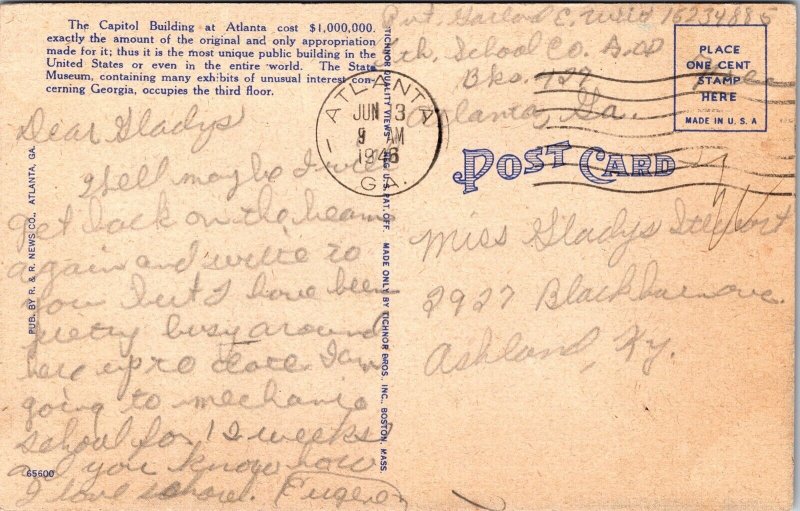 The Capitol Building at Atlanta cost $1,000,000.
exactly the amount of the original and only appropriation
made for it; thus it is the most unique public building in the
United States or even in the entire world. The State
Museum, containing many exhibits of unusual interest con-
cerning Georgia, occupies the third floor.
Pvt. Garland E. 16234885
School Co.
Bks. 727
Atlanta, Ga.
Free
PLACE
ONE CENT
STAMP
HERE
MADE IN U.S.A
ATLANTA
JUN 13
9 AM
1946
GA.
POST CARD
Dear Gladys
Well maybe I will
get back on the beam
again and write to
you but I have been
pretty busy around
here up to date. I am
going to mechanic
school for 12 weeks
and you know how
I love school. Eugene
Miss Gladys Stewart
2927 Blackburn ave.
Ashland, Ky.
PUB. BY R. & R. NEWS CO., ATLANTA, GA.
TICHNOR QUALITY VIEWS REG. U.S. PAT. OFF. MADE ONLY BY TICHNOR BROS., INC., BOSTON, MASS.
65600